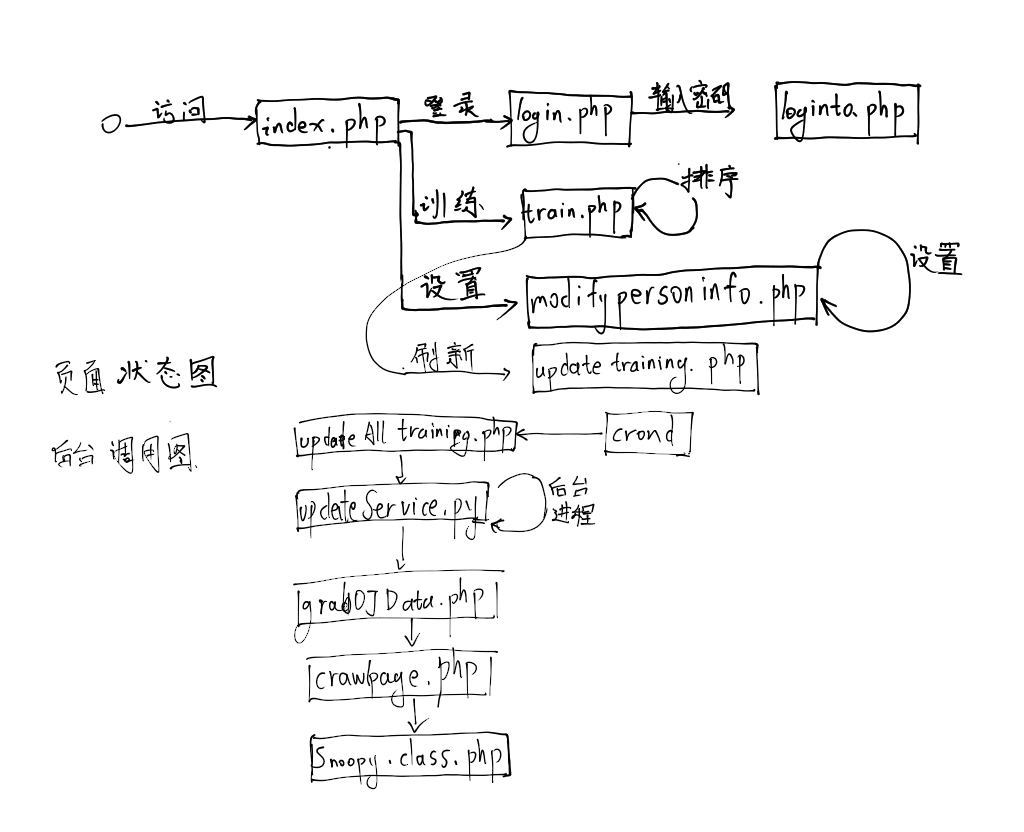 访问
index.php
登录
login.php
输入密码
loginto.php
训练
train.php
排序
设置
modifypersoninfo.php
设置
刷新
updatetraining.php
页面状态图
后台调用图
updateAlltraining.php
crond
updateService.py
后台
进程
grabOJData.php
crawpage.php
Snoopy.class.php